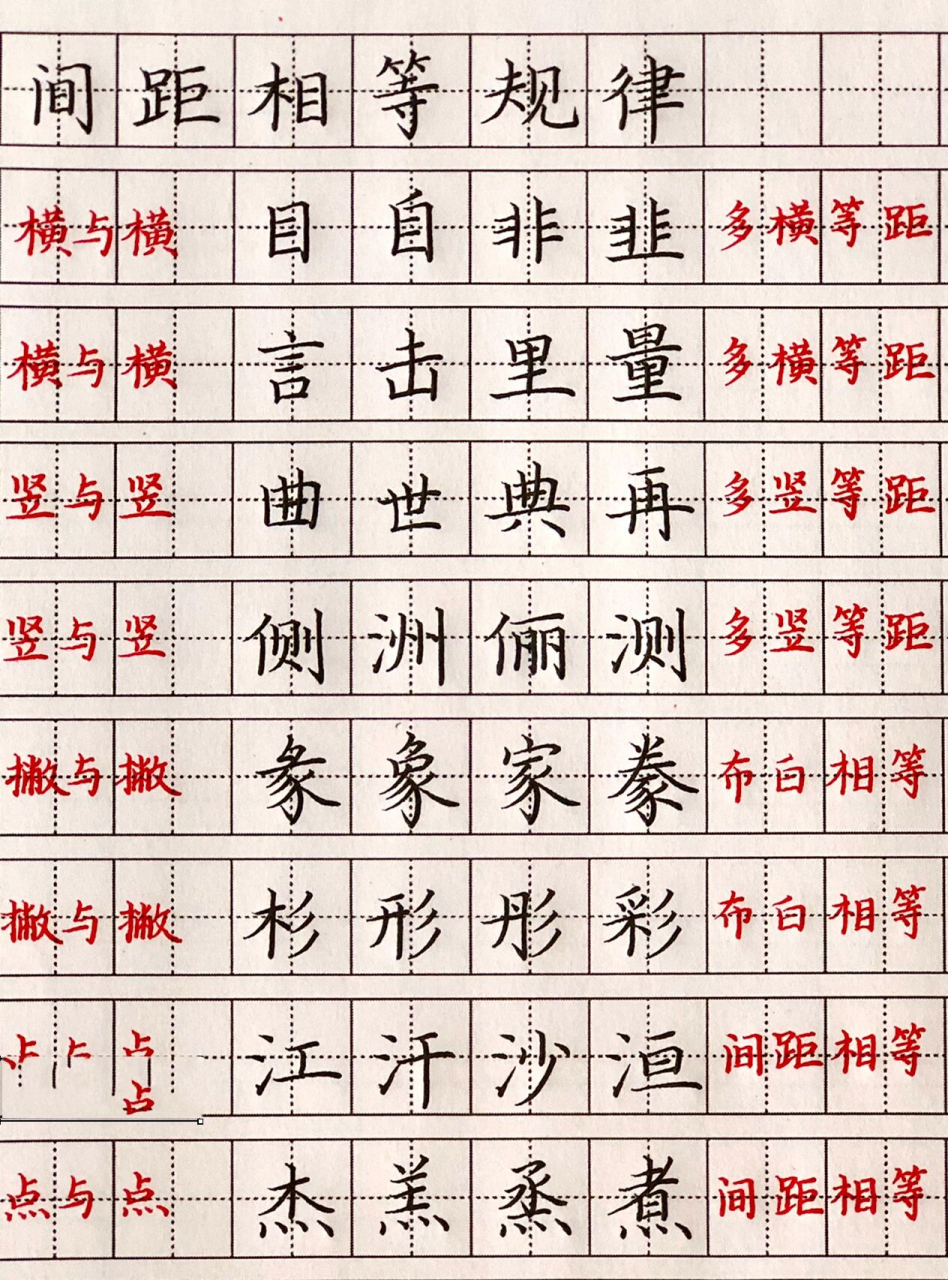 间距相等规律
横与横 目自非韭 多横等距
横与横 言击里量 多横等距
竖与竖 曲世典再 多竖等距
竖与竖 侧洲俪测 多竖等距
撇与撇 彖象家豢 布白相等
撇与撇 杉形彤彩 布白相等
江汗沙洹 间距相等
点与点 杰羔烝煮 间距相等